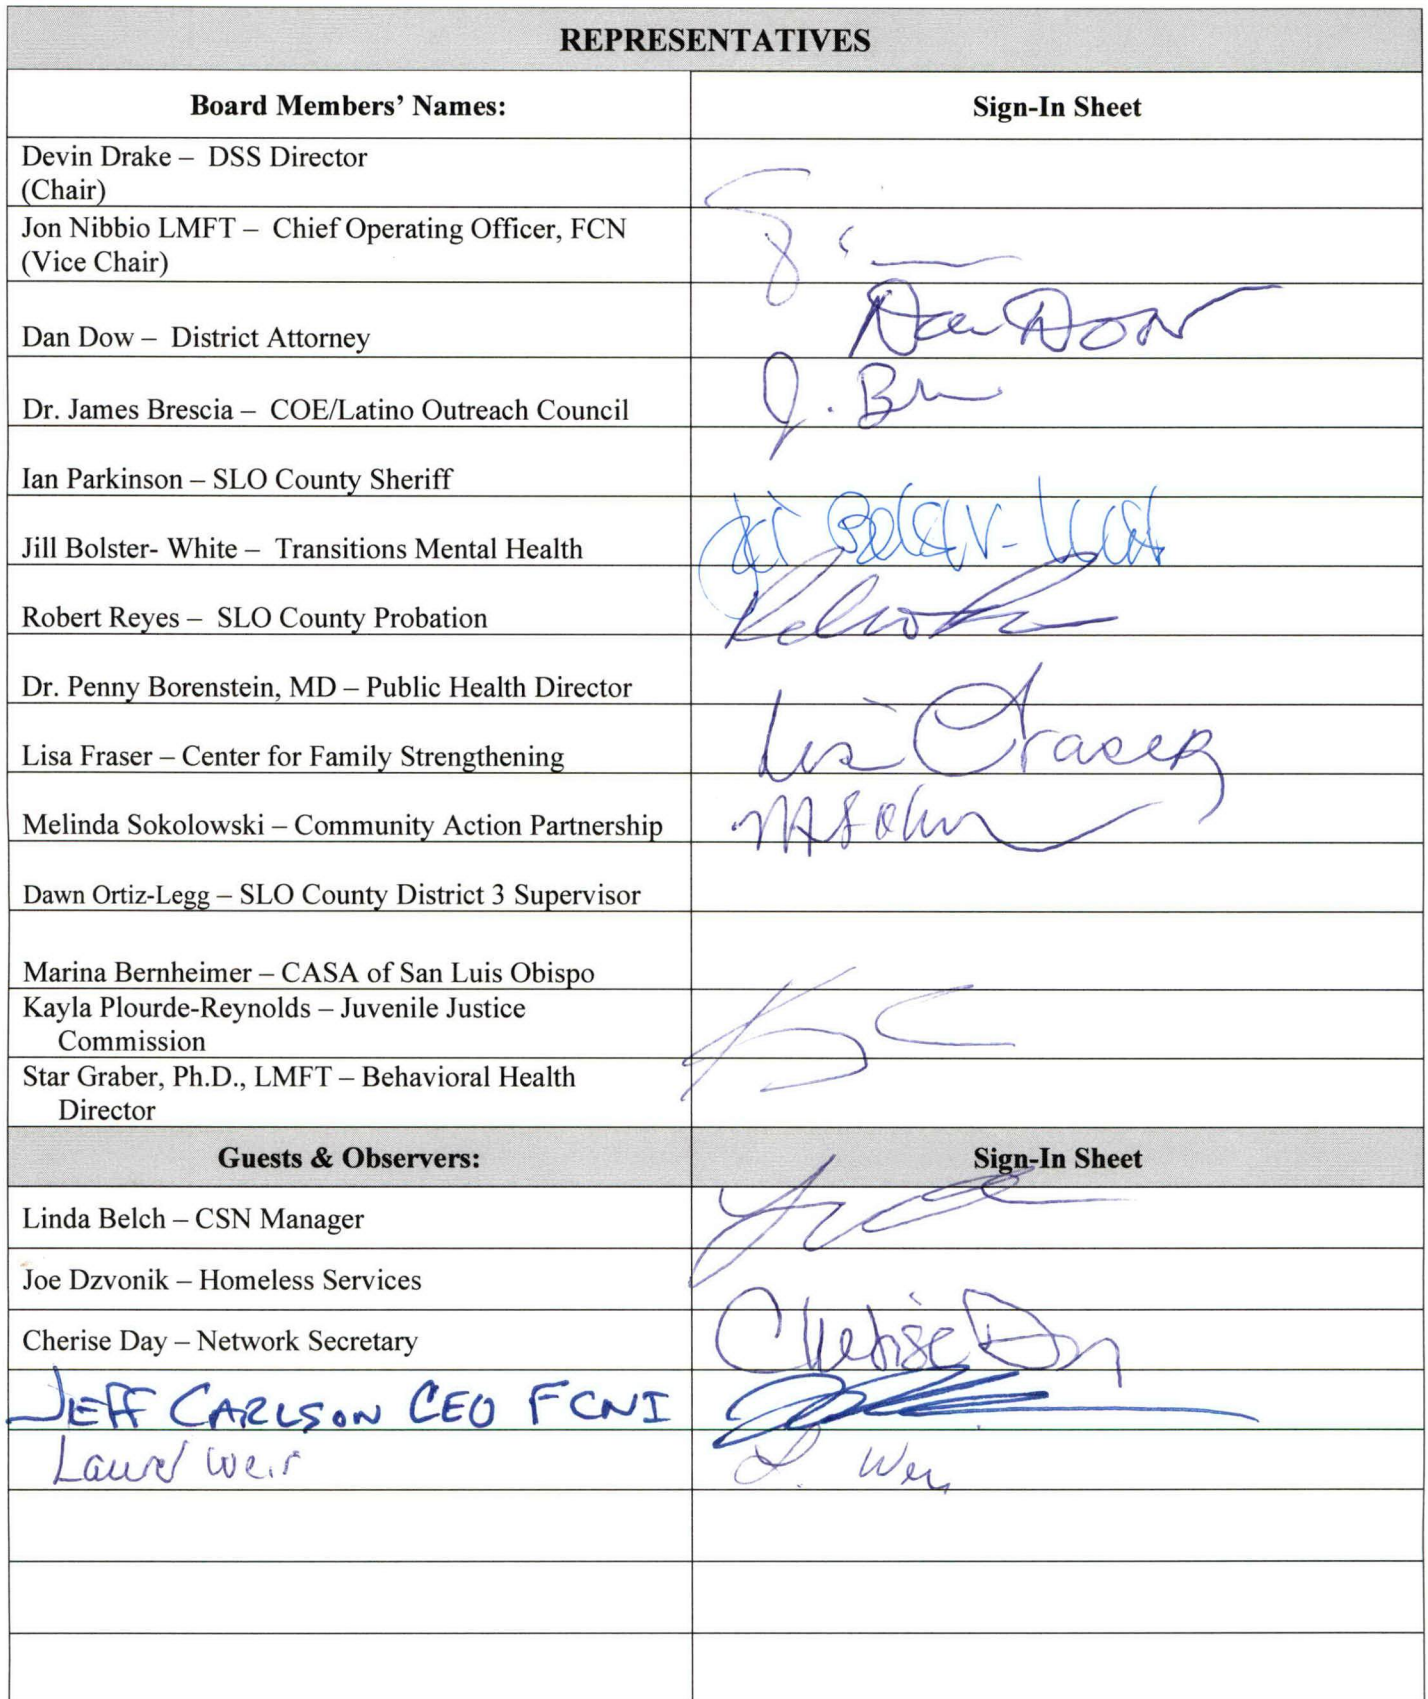 REPRESENTATIVES
Board Members' Names: Sign-In Sheet
Devin Drake – DSS Director
(Chair)
Jon Nibbio LMFT – Chief Operating Officer, FCN
(Vice Chair)
Dan Dow – District Attorney Dan Dow
Dr. James Brescia – COE/Latino Outreach Council J. B
Ian Parkinson – SLO County Sheriff
Jill Bolster- White – Transitions Mental Health
Robert Reyes – SLO County Probation
Dr. Penny Borenstein, MD – Public Health Director
Lisa Fraser – Center for Family Strengthening Lisa Fraser
Melinda Sokolowski – Community Action Partnership
Dawn Ortiz-Legg – SLO County District 3 Supervisor
Marina Bernheimer – CASA of San Luis Obispo
Kayla Plourde-Reynolds – Juvenile Justice
Commission
Star Graber, Ph.D., LMFT – Behavioral Health
Director
Guests & Observers: Sign-In Sheet
Linda Belch – CSN Manager
Joe Dzvonik – Homeless Services
Cherise Day – Network Secretary Cherise Day
JEFF CARLSON CEO FCNI
Laurel Weir L. Weir